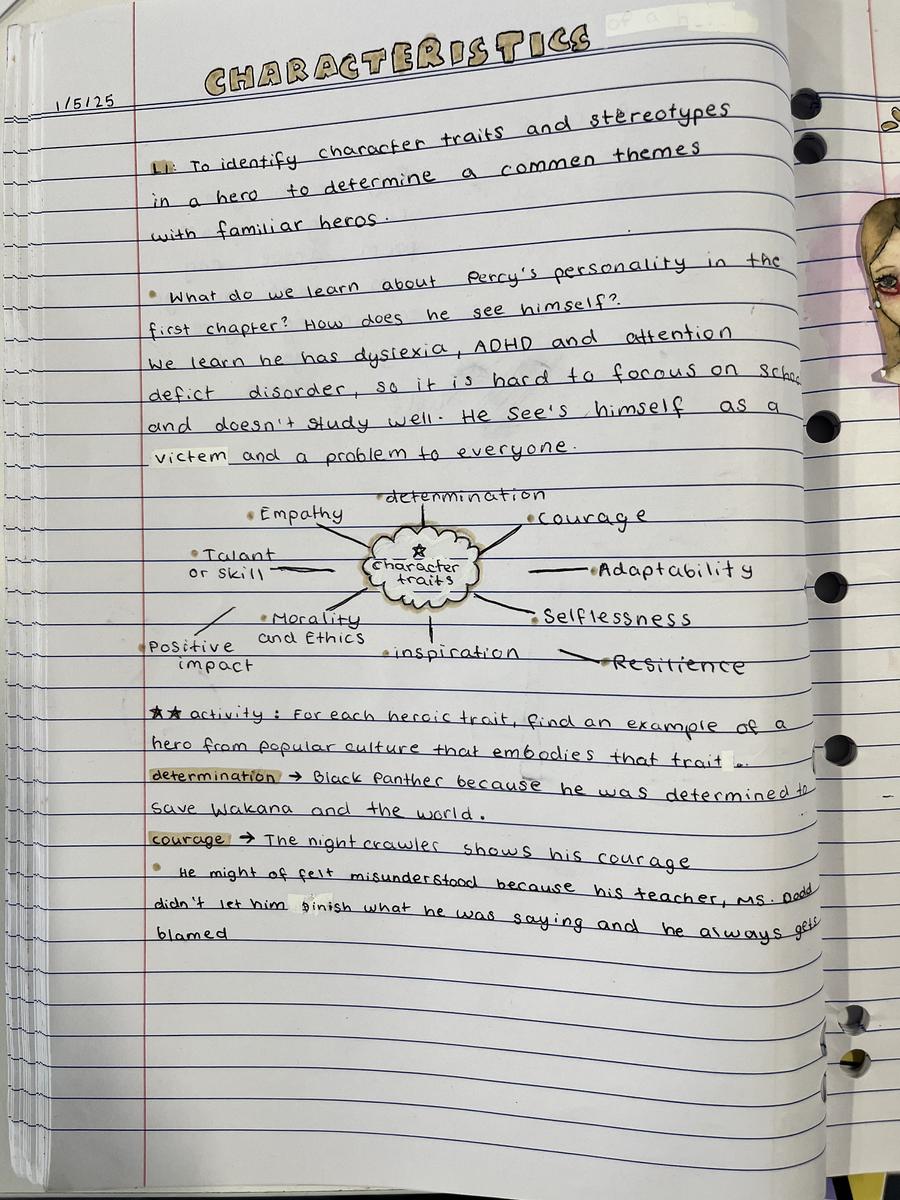 CHARACTERISTICS
1/5/25
LI: To identify character traits and stereotypes
in a hero to determine a commen themes
with familiar heros.
• What do we learn about Percy's personality in the
first chapter? How does he see himself?
We learn he has dyslexia, ADHD and attention
defict disorder, so it is hard to forcus on
and doesn't study well. He see's himself as a
victem and a problem to everyone.
• determination
• Empathy
• courage
★
character
traits
• Talant
or skill
• Adaptability
• Morality
and Ethics
• Selflessness
• Positive
impact
• inspiration
• Resilience
★★ activity: For each heroic trait, find an example of a
hero from popular culture that embodies that trait ..
determination → Black Panther because he was determined to
save Wakana and the world.
courage → The night crawler shows his courage
• He might of felt misunderstood because his teacher, Ms. Dodd
didn't let him finish what he was saying and he always gets
blamed